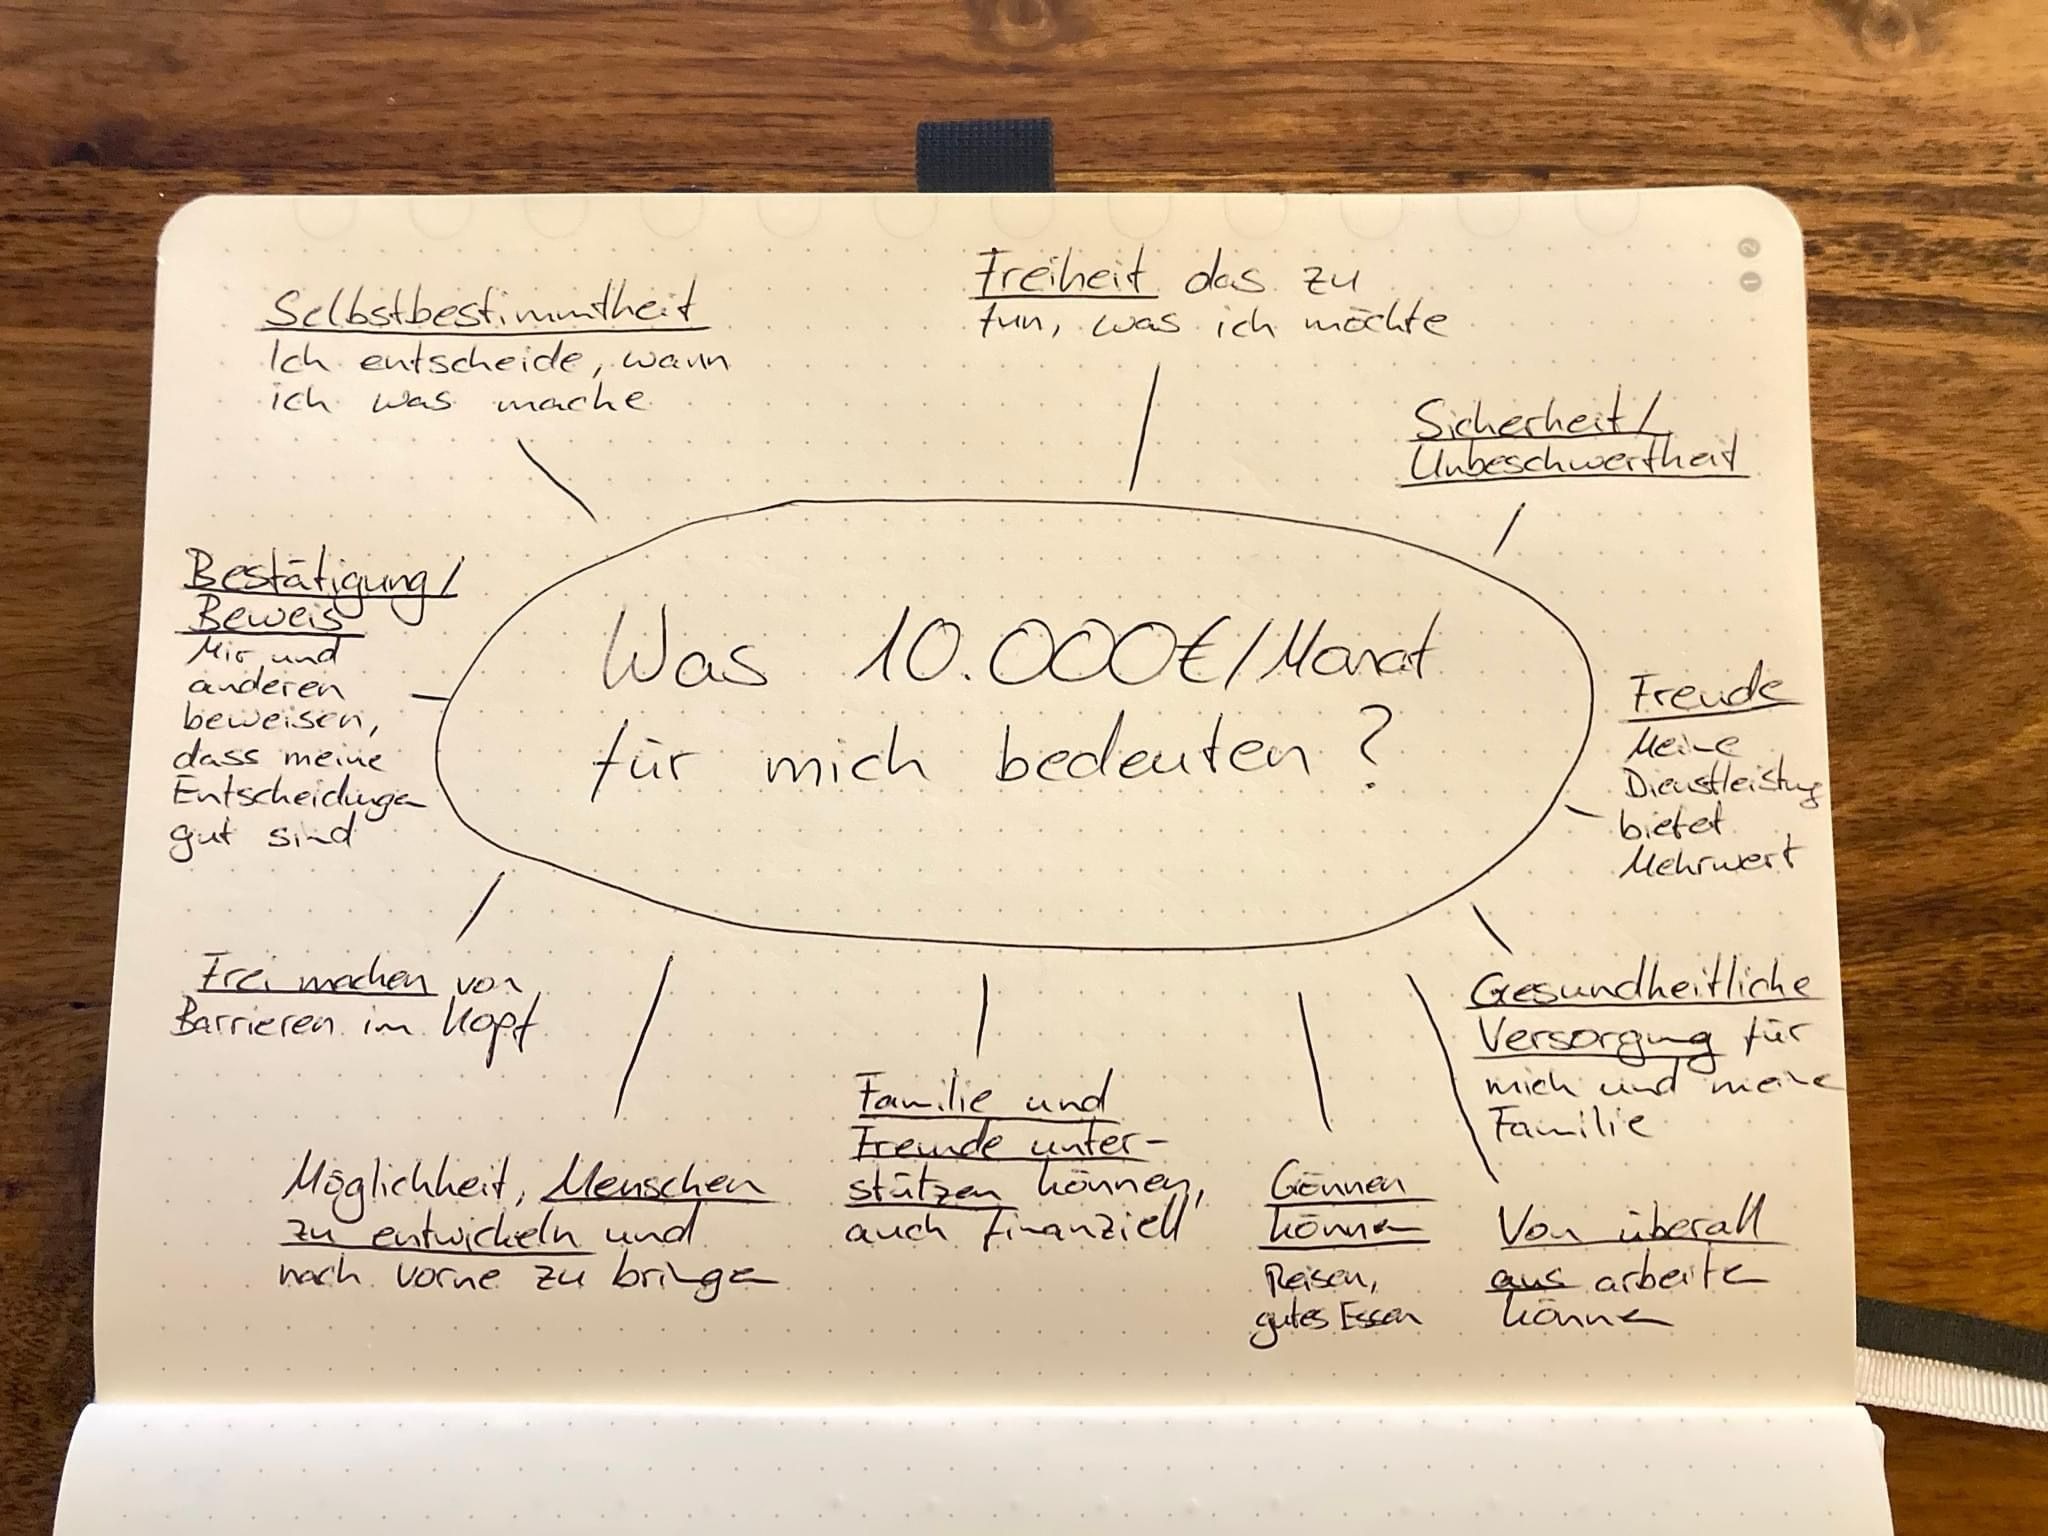 Selbstbestimmtheit
Ich entscheide, wann
ich was mache
Freiheit das zu
tun, was ich möchte
Sicherheit/
Unbeschwertheit
Bestätigung/
Beweis
Mir und
anderen
beweisen,
dass meine
Entscheidungen
gut sind
Was 10.000€/Monat
für mich bedeuten?
Freude
Meine
Dienstleistung
bietet
Mehrwert
Frei machen von
Barrieren im Kopf
Möglichkeit, Menschen
zu entwickeln und
nach vorne zu bringen
Familie und
Freunde unter-
stützen können,
auch finanziell
Gönnen
können
Reisen,
gutes Essen
Von überall
aus arbeiten
können
Gesundheitliche
Versorgung für
mich und meine
Familie
2
1